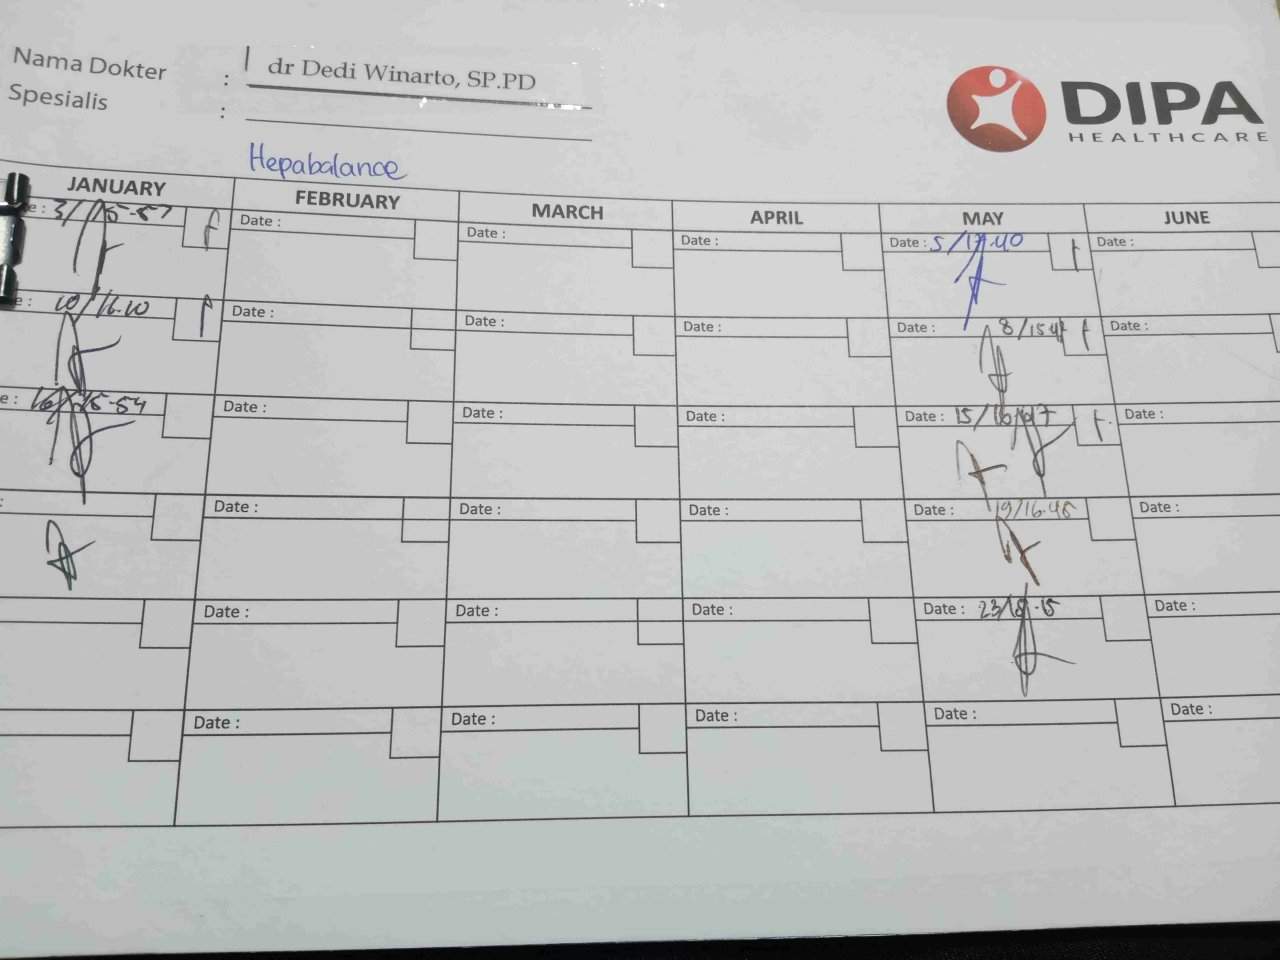 Nama Dokter : dr Dedi Winarto, SP.PD
Spesialis :
DIPA
HEALTHCARE
Hepabalance
JANUARY FEBRUARY MARCH APRIL MAY JUNE
e: 3/15-57 Date : Date : Date : Date : 5/17.40 Date :
e: 10/16.10 Date : Date : Date : Date : 8/15 Date :
e: 16/15-54 Date : Date : Date : Date : 15/16 Date :
: Date : Date : Date : Date : 19/16.45 Date :
Date : Date : Date : Date : 23/18.15 Date :
Date : Date : Date : Date : Date :